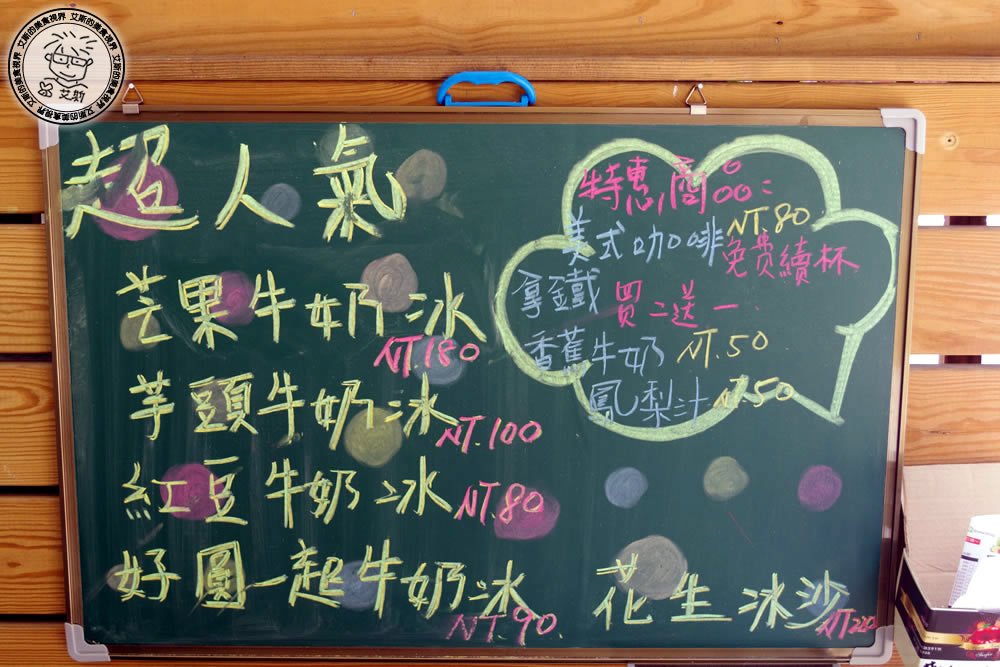 艾斯的美食視界 艾斯的美食視界 艾斯的美食視界
超人氣
芒果牛奶冰
NT.180
芋頭牛奶冰 NT.100
紅豆牛奶冰 NT.80
好圓一起牛奶冰
NT.90.
花生冰沙
特惠商品:
美式咖啡 NT.80
免費續杯
拿鐵 買二送一.
香蕉牛奶 NT.50
鳳梨汁 NT.50